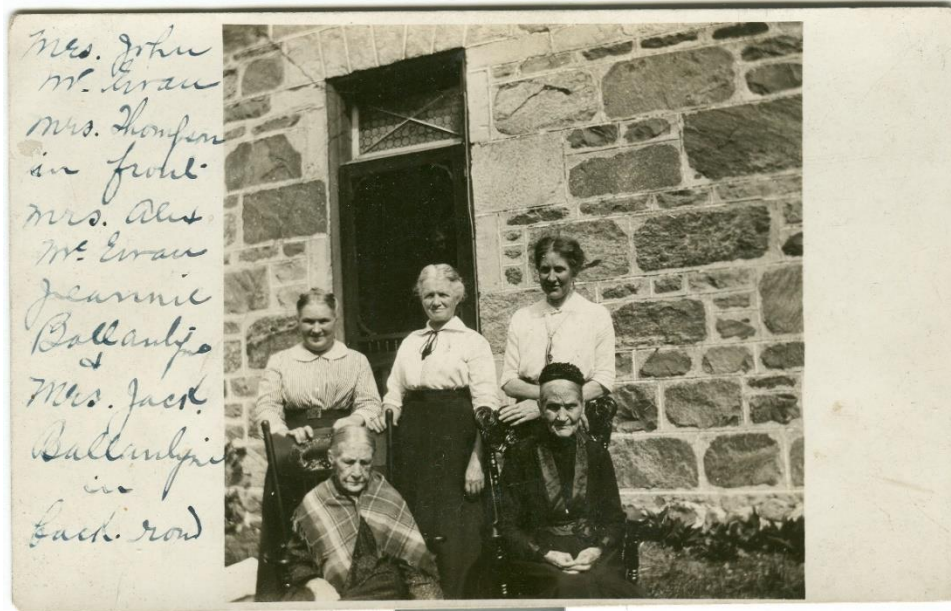 Mrs. John
Mc Ewan
Mrs. Thompson
in front
Mrs. Alex
Mc Ewan
Jeannie
Ballantyne
&
Mrs. Jack
Ballantyne
in
back row